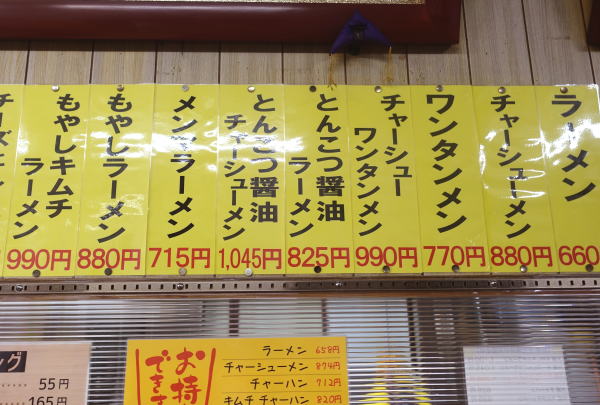 ラーメン
660
チャーシューメン
880円
ワンタンメン
770円
チャーシュー
ワンタンメン
990円
とんこつ醤油
ラーメン
825円
とんこつ醤油
チャーシューメン
1,045円
メンマラーメン
715円
もやしラーメン
880円
もやしキムチ
ラーメン
990円
お持
できま
ラーメン 658円
チャーシューメン 874円
チャーハン 712円
キムチチャーハン 820円
ング
55円
165円